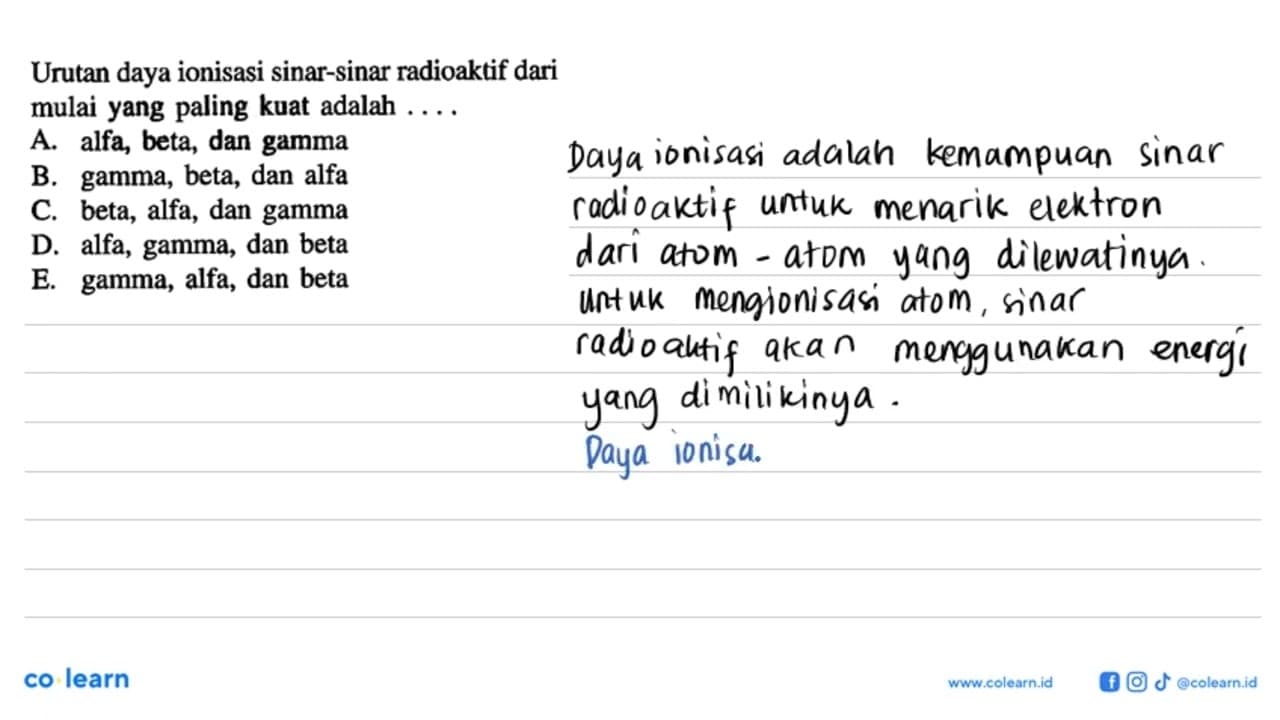 Urutan daya ionisasi sinar-sinar radioaktif dari
mulai yang paling kuat adalah . . . .
A. alfa, beta, dan gamma
B. gamma, beta, dan alfa
C. beta, alfa, dan gamma
D. alfa, gamma, dan beta
E. gamma, alfa, dan beta
Daya ionisasi adalah kemampuan sinar
radioaktif untuk menarik elektron
dari atom - atom yang dilewatinya.
untuk mengionisasi atom, sinar
radioaktif akan menggunakan energi
yang dimilikinya.
Daya ionisa.
co learn
www.colearn.id
@colearn.id